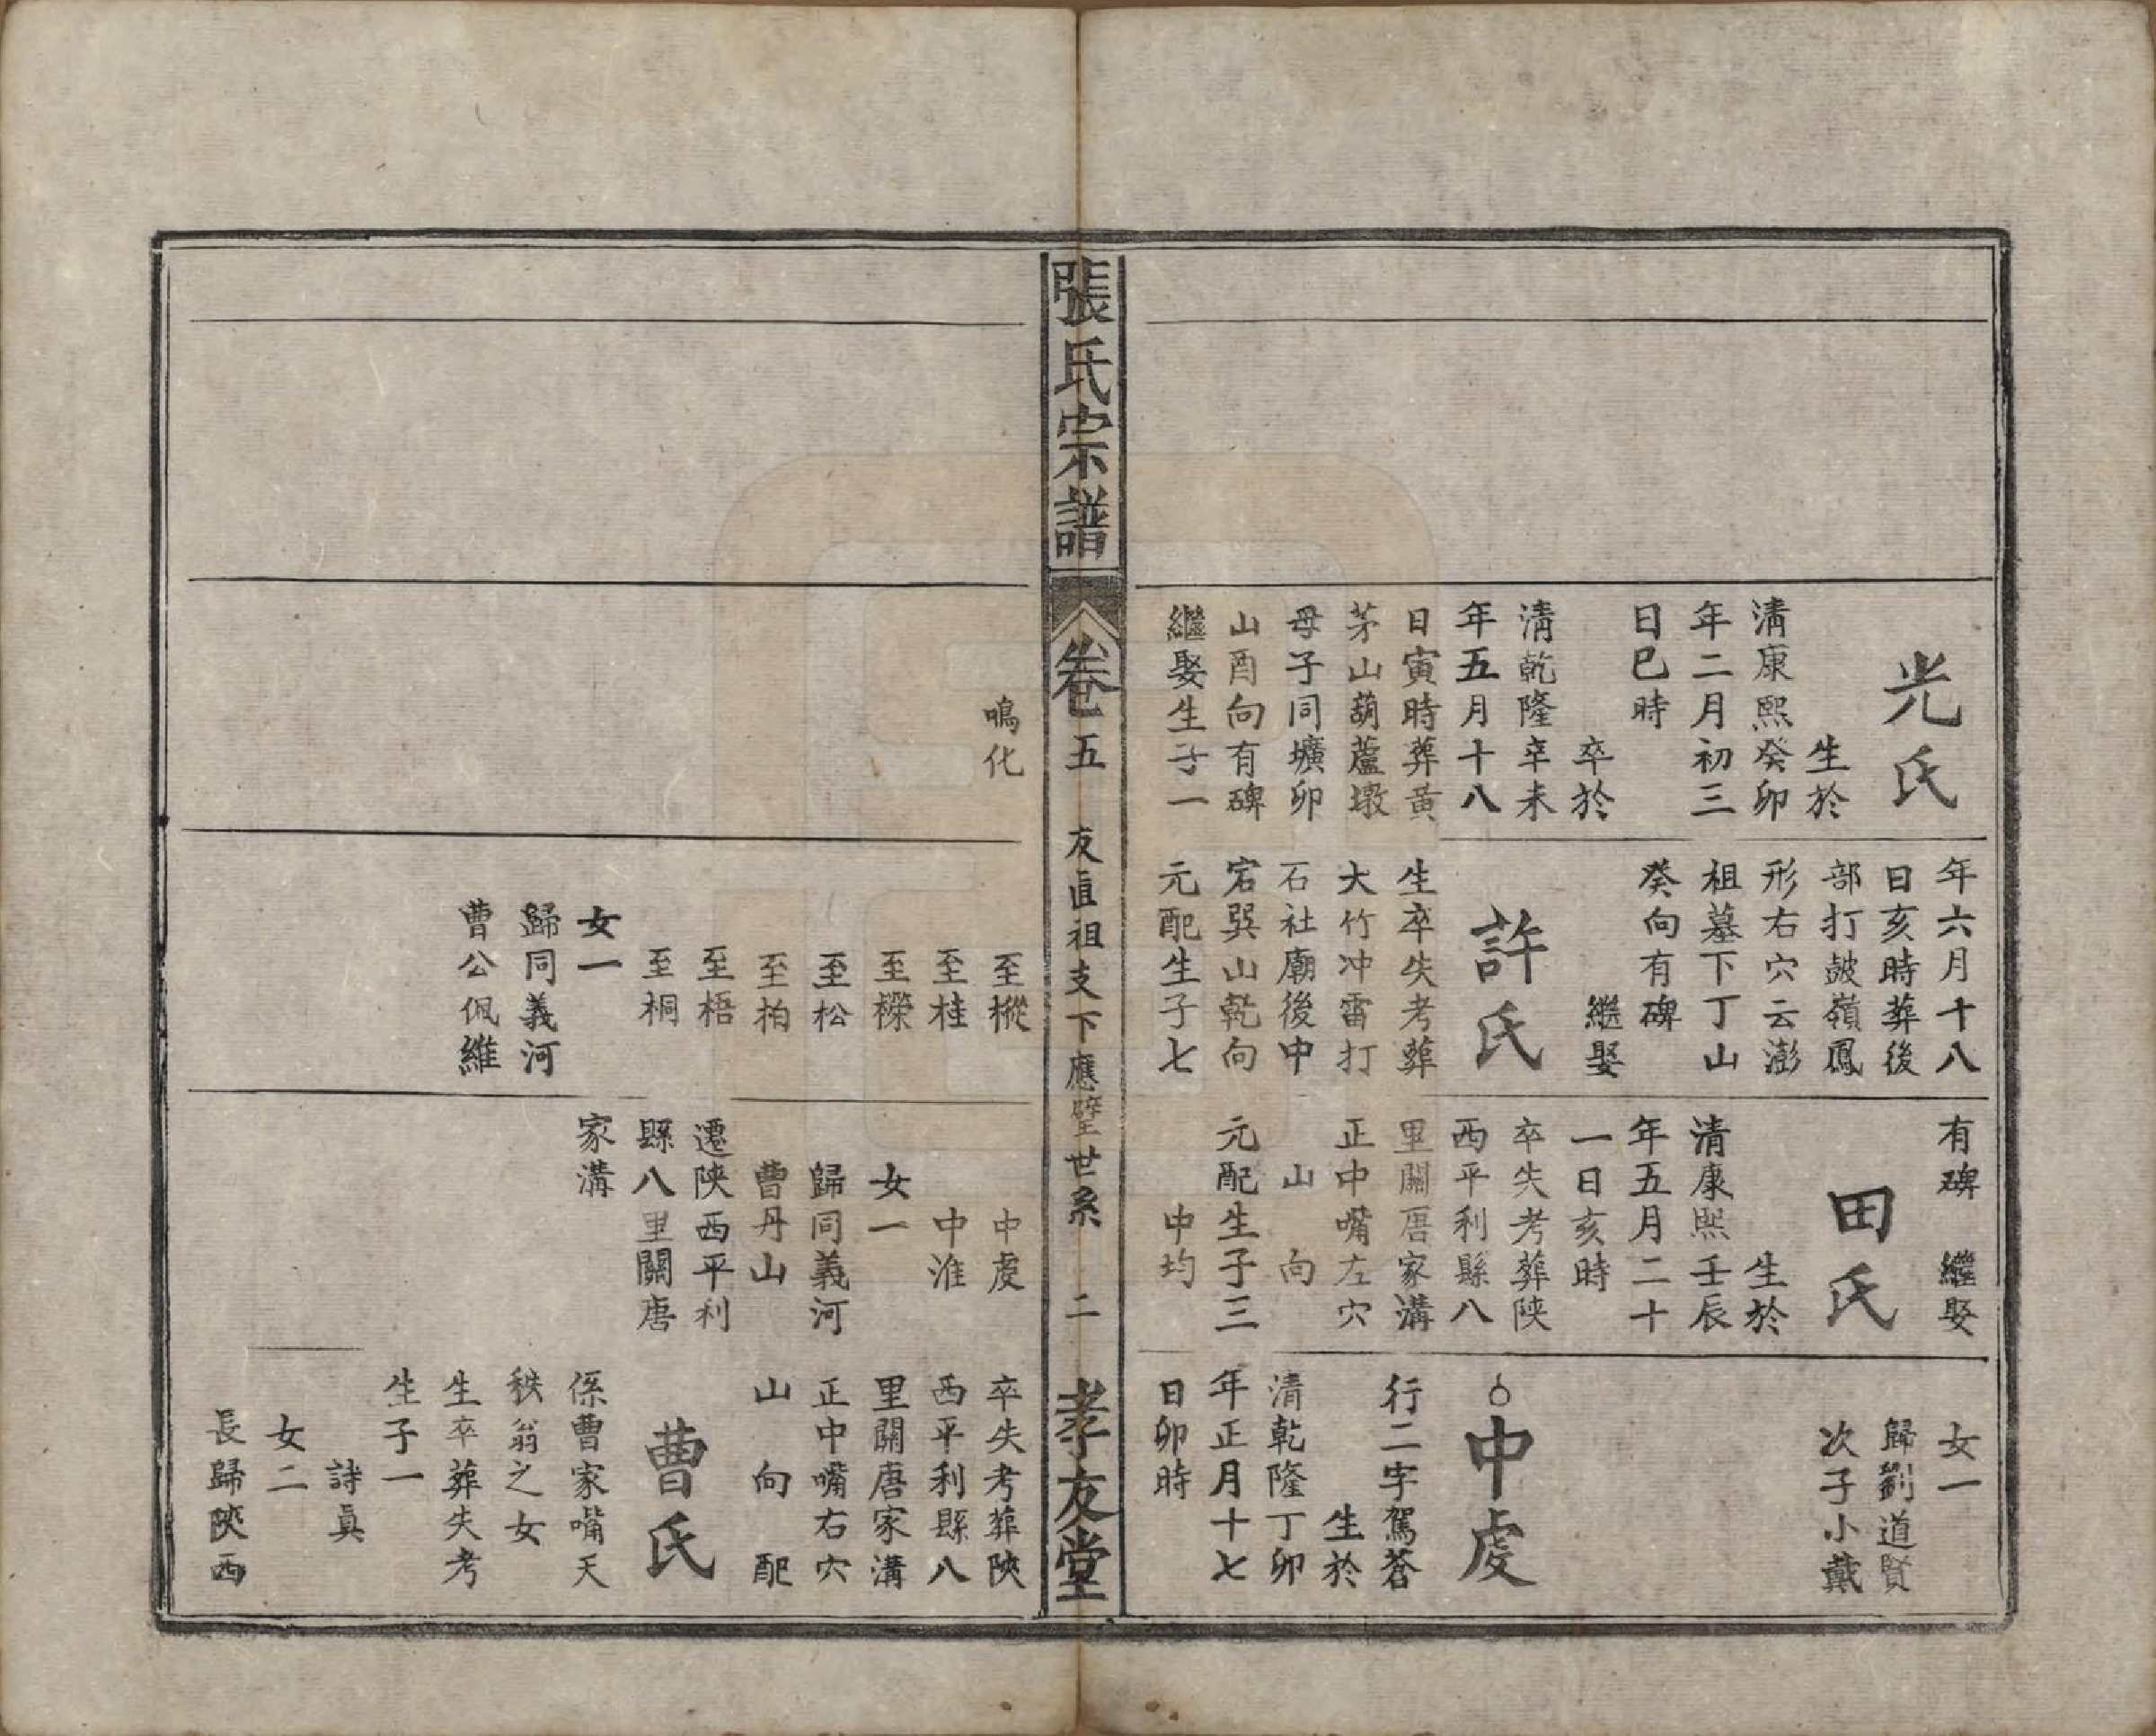 光氏
生於
清康熙癸卯
年二月初三
日巳時
卒於
清乾隆辛未
年五月十八
日寅時葬黄
茅山葫蘆墩
母子同壙卯
山酉向有碑
繼娶生子一
年六月十八
日亥時葬後
部打皷嶺鳳
形右穴云澎
祖墓下丁山
癸向有碑
繼娶
許氏
生卒失考葬
大竹冲雷打
石社廟後中
宕巽山乾向
元配生子七
有碑 繼娶
田氏
生於
清康熙壬辰
年五月二十
一日亥時
卒失考葬陕
西平利縣八
里關唐家溝
正中嘴左穴
山 向
元配生子三
中均
女一
歸劉道賢
次子小戴
中虔
行二字駕蒼
生於
清乾隆丁卯
年正月十七
日卯時
張氏宗譜
卷五
友直祖支下應壁世系
二
孝友堂
鳴化
至樅
至桂
至櫟
至松
至柏
至梧
至桐
女一
歸同義河
曹公佩維
中虔
中淮
女一
歸同義河
曹丹山
遷陕西平利
縣八里關唐
家溝
卒失考葬陝
西平利縣八
里關唐家溝
正中嘴右穴
山 向 配
曹氏
係曹家嘴天
秩翁之女
生卒葬失考
生子一
詩真
女二
長歸陝西